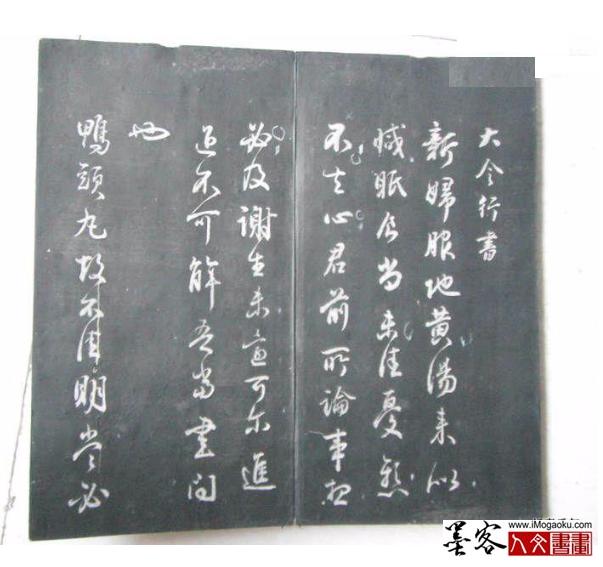 大令行書
新婦服地黃湯來似
減眠食尚未佳憂懸
不去心君前所論事想
必及謝生未還可尔進
退不可解吾當書問
也
鴨頭丸故不佳明當必
墨客
www.iMogaoku.com
人文書畫